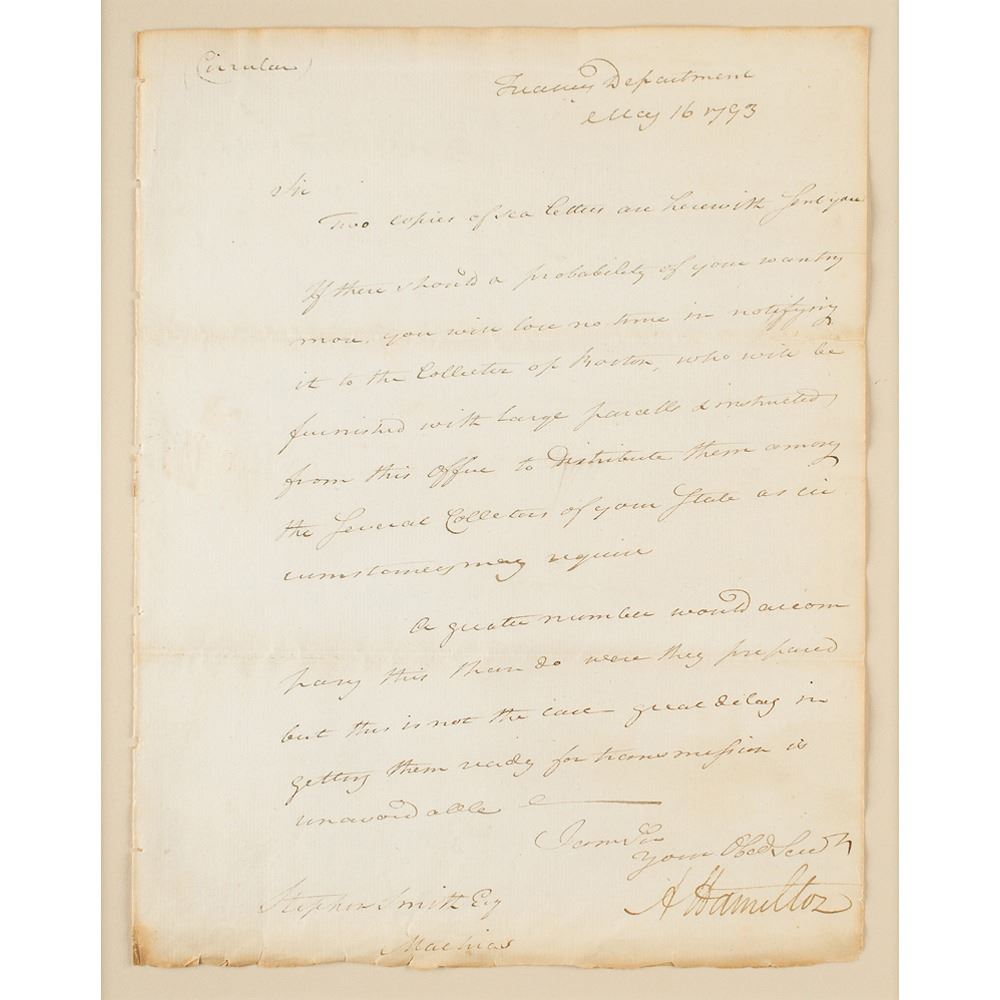 (Circular)
Treasury Department
May 16 1793
Sir
Two copies of sea letters are herewith sent you
If there should a probability of your wanting
more, you will lose no time in notifying
it to the Collector of Boston, who will be
furnished with large parcells & instructed
from this Office to distribute them among
the several Collectors of your State as cir
cumstances may require
A greater number would accom
pany this than do were they prepared
but this is not the case great delay in
getting them ready for transmission is
unavoidable
I am Sir
Your Obed Servt
A Hamilton
Stephen Smith Esq
Machias